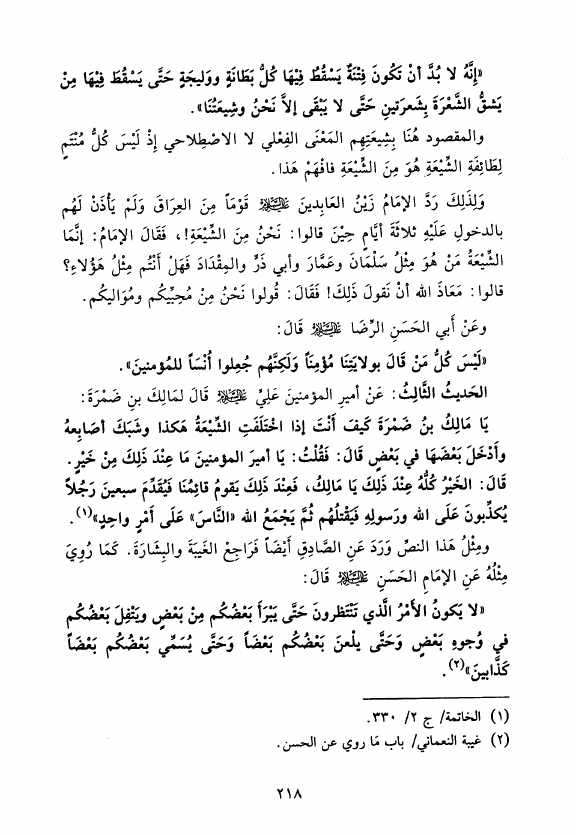 «إِنَّهُ لا بُدَّ أنْ تَكُونَ فِتْنَةٌ يَسْقُطُ فِيهَا كُلُّ بَطَانَةٍ ووَليجَةٍ حَتَّى يَسْقُطَ فِيهَا مِنْ
يَشقُّ الشَّعْرَةَ بِشَعرتَينِ حَتَّى لا يَبْقَى إلاَّ نَحْنُ وشِيعَتُنَا».
والمقصود هُنَا بِشيعَتِهِم المَعْنَى الفِعْلي لا الاصْطِلاحي إذْ لَيْسَ كُلُّ مُنْتَمٍ
لِطَائِفَةِ الشِّيْعَةِ هوَ مِنَ الشِّيْعَةِ فافْهَمْ هَذا.
وَلِذَلِكَ رَدَّ الإمَامُ زَيْنُ العَابِدينَ عليه السلام قَوْماً مِنَ العِرَاقَ وَلَمْ يَأذَنْ لَهُم
بالدخولِ عَلَيْهِ ثلاثَةَ أيَّامٍ حِيْنَ قالوا: نَحْنُ مِنَ الشِّيْعَةِ!، فَقَالَ الإمَامُ: إنَّمَا
الشِّيْعَةُ مَنْ هُوَ مِثْلُ سَلْمَانَ وعَمَّارَ وأبي ذَرٍّ والمِقْدَادَ فَهَلْ أنْتُم مِثْلُ هَؤُلاءِ؟
قالوا: مَعَاذَ الله أنْ نَقولَ ذَلِكَ! فَقَالَ: قُولوا نَحْنُ مِنْ مُحِبِّيكُم ومُوَاليكُم.
وعَنْ أبي الحَسَنِ الرِّضَا عليه السلام قَالَ:
«لَيْسَ كُلُّ مَنْ قَالَ بولايَتِنَا مُؤْمِنَاً وَلَكِنَّهُم جُعِلوا أُنْسَاً للمُؤمنينَ».
الحَديثُ الثَّالِثُ: عَنْ أميرِ المؤمنينَ عَلِيِّ عليه السلام قَالَ لمَالكِ بنِ ضَمْرَةَ:
يَا مَالكُ بنُ ضَمْرَةَ كَيفَ أنْتَ إذا اخْتَلَفَتِ الشِّيْعَةُ هكذا وشَبَكَ أصَابِعهُ
وأدْخَلَ بَعْضَهَا في بَعْضٍ قَالَ: فَقُلْتُ: يَا أميرَ المؤمنينَ مَا عِنْدَ ذَلِكَ مِنْ خَيْرٍ.
قَالَ: الخَيْرُ كُلُّهُ عِنْدَ ذَلِكَ يَا مَالكُ، فَعِنْدَ ذَلِكَ يَقومُ قائِمُنَا فَيُقَدِّمَ سبعينَ رَجُلاً
يُكذِّبونَ عَلَى الله ورَسولِهِ فَيَقْتُلُهُم ثُمَّ يَجْمَعُ الله «النَّاسَ» عَلَى أمْرٍ واحِدٍ»(١).
ومِثْلُ هَذا النصِّ وَرَدَ عَنِ الصَّادِقِ أيْضَاً فَرَاجِعْ الغَيْبَةَ والبِشَارَةَ. كَمَا رُوِيَ
مِثْلُهُ عَنِ الإمَامِ الحَسَنِ عليه السلام قَالَ:
«لا يَكونُ الأمْرُ الَّذي تَنْتَظرونَ حَتَّى يَبْرَأَ بَعْضُكُم مِنْ بَعْضٍ ويَتْفِلَ بَعْضُكُم
في وُجوهِ بَعْضٍ وَحَتَّى يلْعنَ بَعْضُكُم بَعْضَاً وَحَتَّى يُسَمِّي بَعْضُكُم بَعْضَاً
كَذَّابينَ»(٢).
(١) الخاتمة/ ج ٢/ ٣٣٠.
(٢) غيبة النعماني/ باب مَا روي عن الحسن.
٢١٨